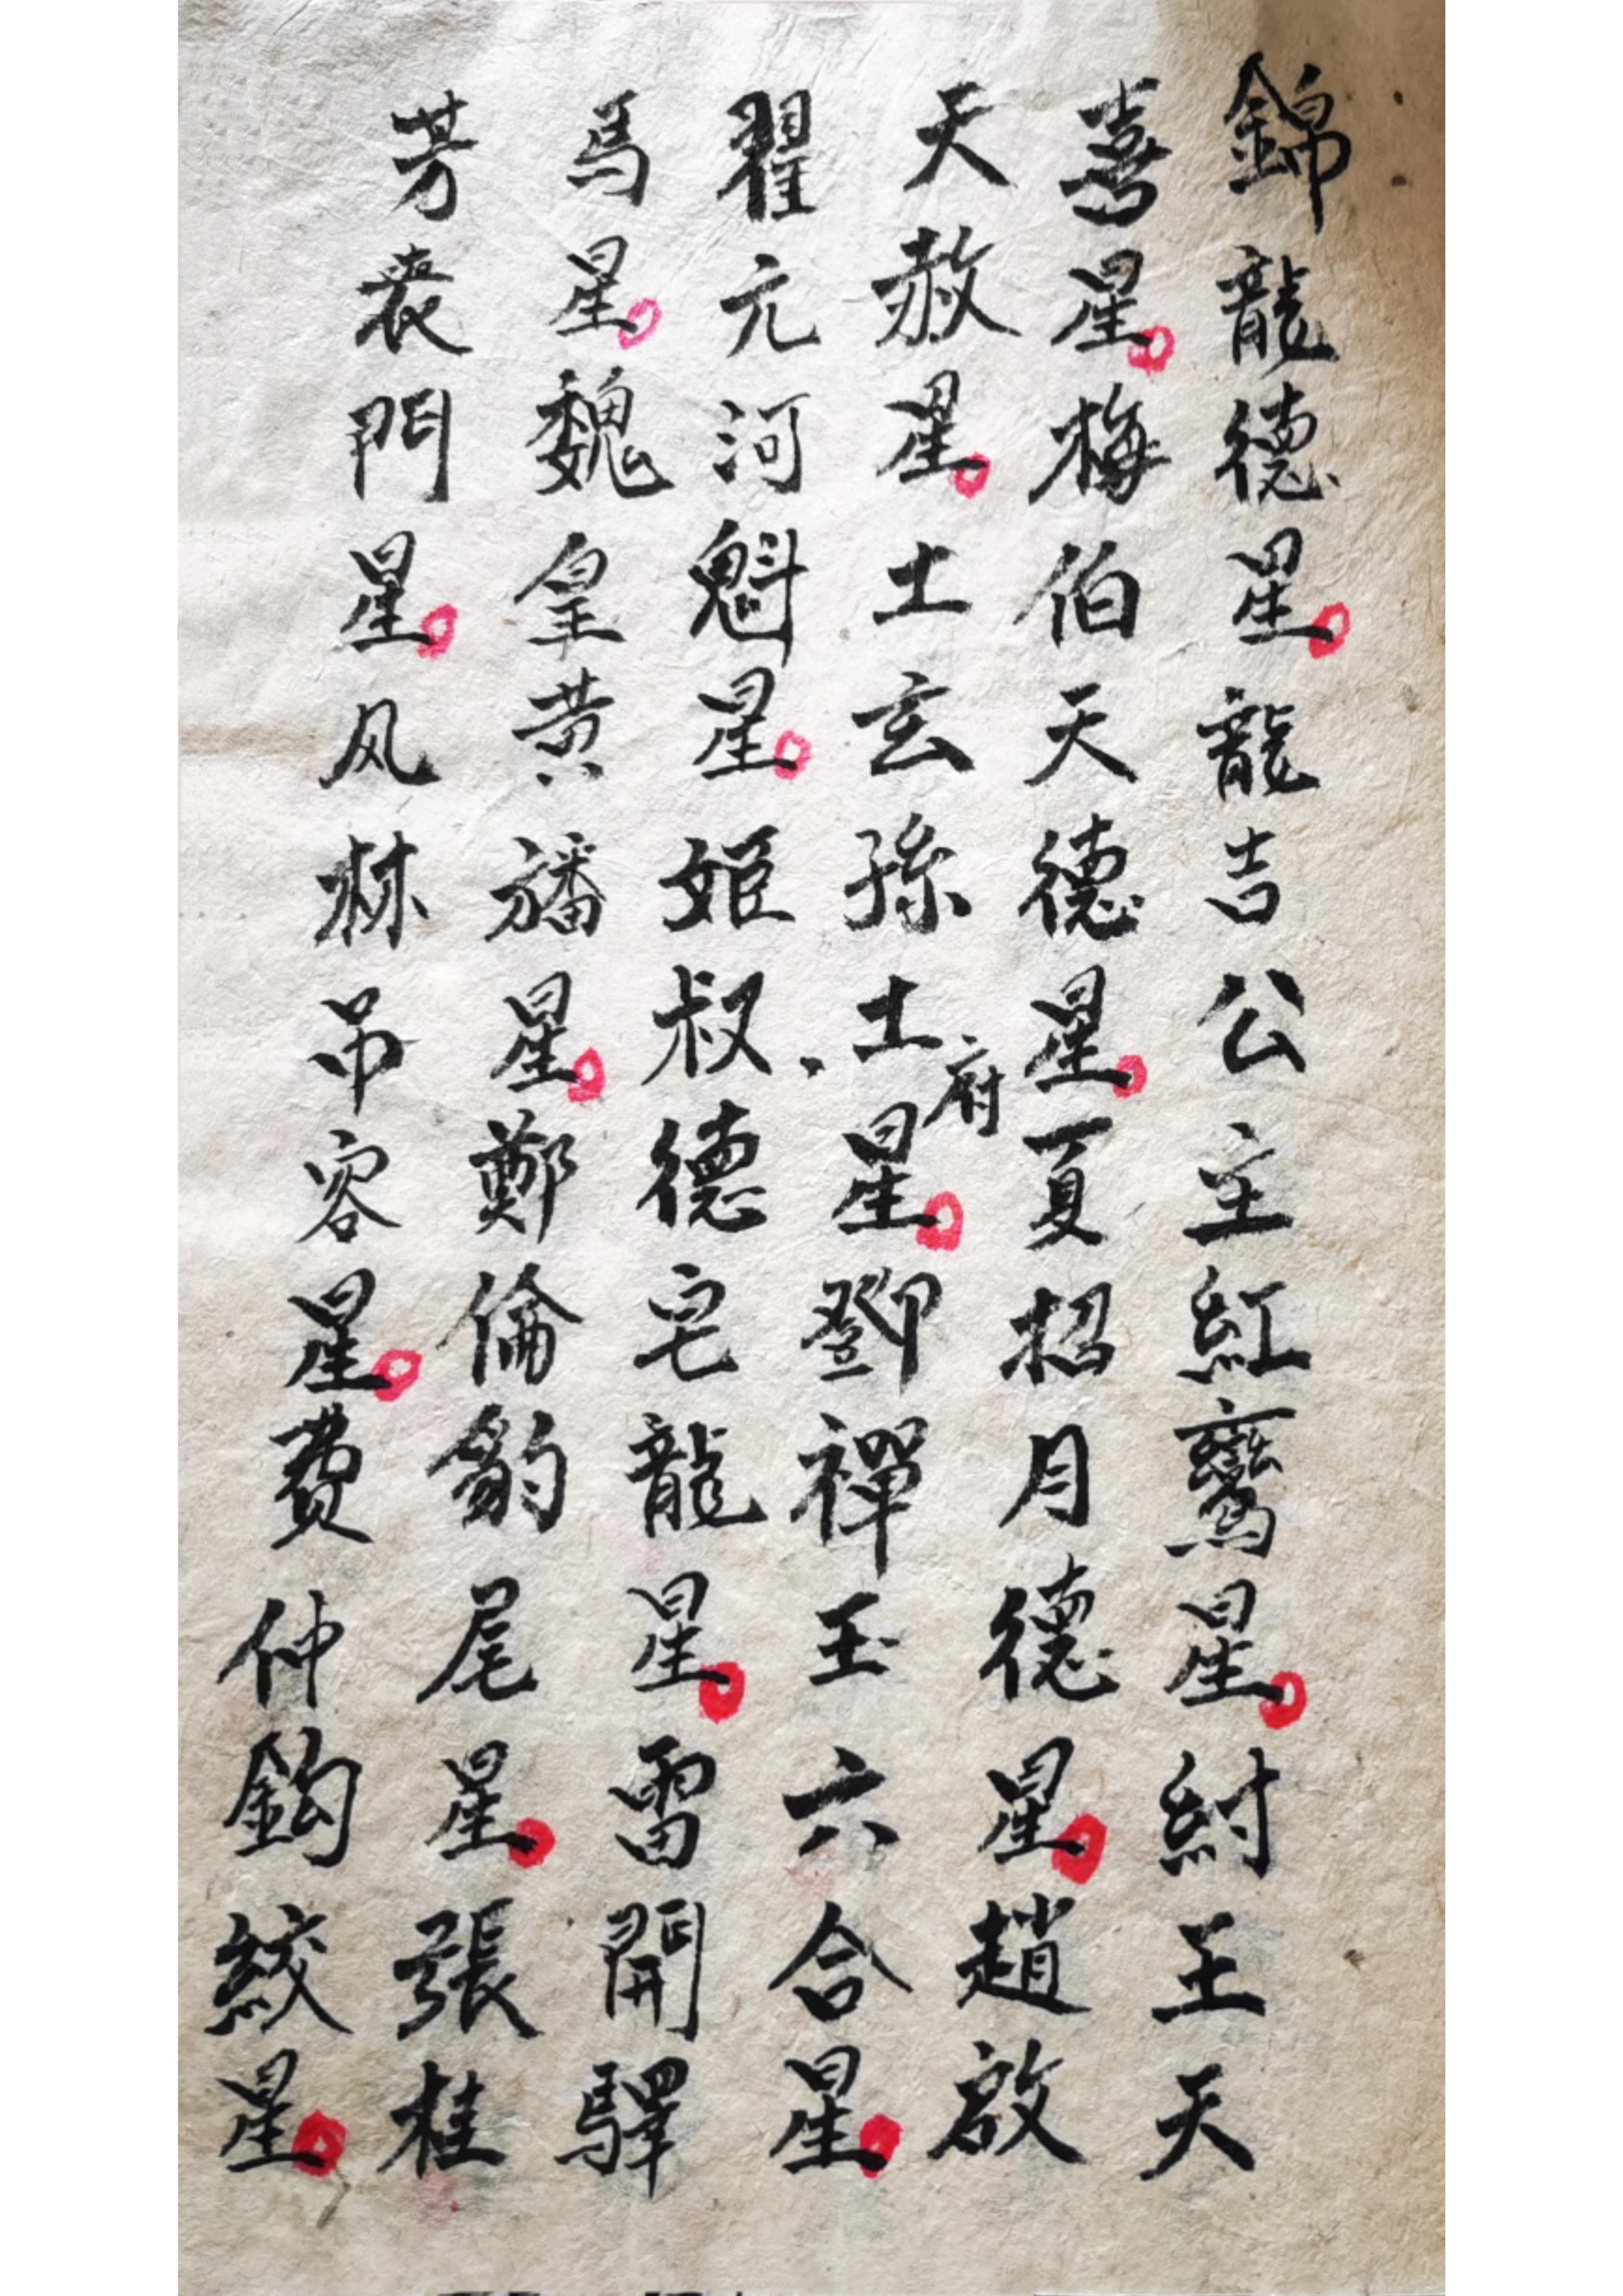 錦龍德星。龍吉公主紅鸞星。紂王天
喜星。梅伯天德星。夏招月德星。趙啟
天赦星。土玄孫土府星。鄧禪玉六合星。
翟元河魁星。姬叔德宅龍星。雷開驛
馬星。魏皇黃旛星。鄭倫豹尾星。張桂
芳喪門星。风林吊容星。費仲鈎絞星。